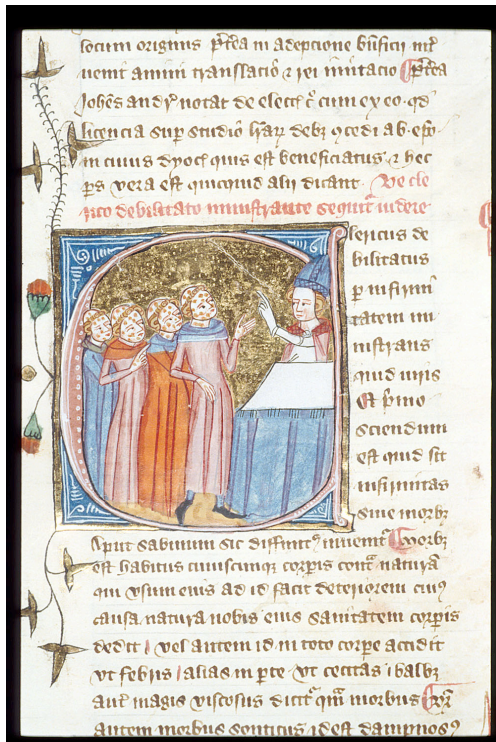 locum originis p̄tea in adepcione bn̄ficij int̄
uenit animi translacio ⁊ rei mutacio ¶ p̄tea
Johēs andr̄ notat de elect c̄ cum ex eo. qd
licencia sup studio lr̄ar debꝫ ↄcedi ab epō
in cuius dyoc quis est beneficiatus ⁊ hec
ps vera est quicquid alij dicant. De cle
rico debilitato ministrante sequit̄ videre
lericus de
bilitatus
p infirmi
tatem mi
nistrans
quid iuris
Et pimo
sciendum
est quid sit
infirmitas
siue morbꝫ
Aput sabinum sic diffinitꝰ inuenit̄ ¶ Morbꝫ
est habitus cuiuscumqꝫ corpis cont̄ naturā
qui vsum eius ad id facit deteriorem cuiꝰ
causa natura nobis eius sanitatem corpis
dedit / vel autem id in toto corpe accidit
vt febris / alias in pte vt cecitas
aut̄ magis viscosus dicit̄ qm̄ morbus
autem morbus sonticus id est dampnosꝰ